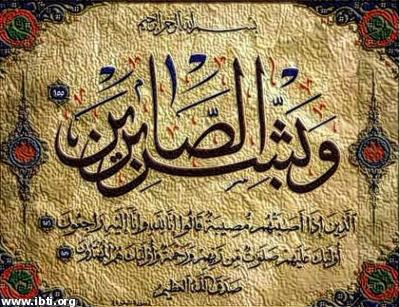 بسم الله الرحمن الرحيم
وَبَشِّرِ الصَّابِرِينَ ١٥٥
الَّذِينَ إِذَا أَصَابَتْهُم مُّصِيبَةٌ قَالُوا إِنَّا لِلَّهِ وَإِنَّا إِلَيْهِ رَاجِعُونَ ١٥٦
أُولَٰئِكَ عَلَيْهِمْ صَلَوَاتٌ مِّن رَّبِّهِمْ وَرَحْمَةٌ وَأُولَٰئِكَ هُمُ الْمُهْتَدُونَ ١٥٧
صدق الله العظيم
www.ibti.org